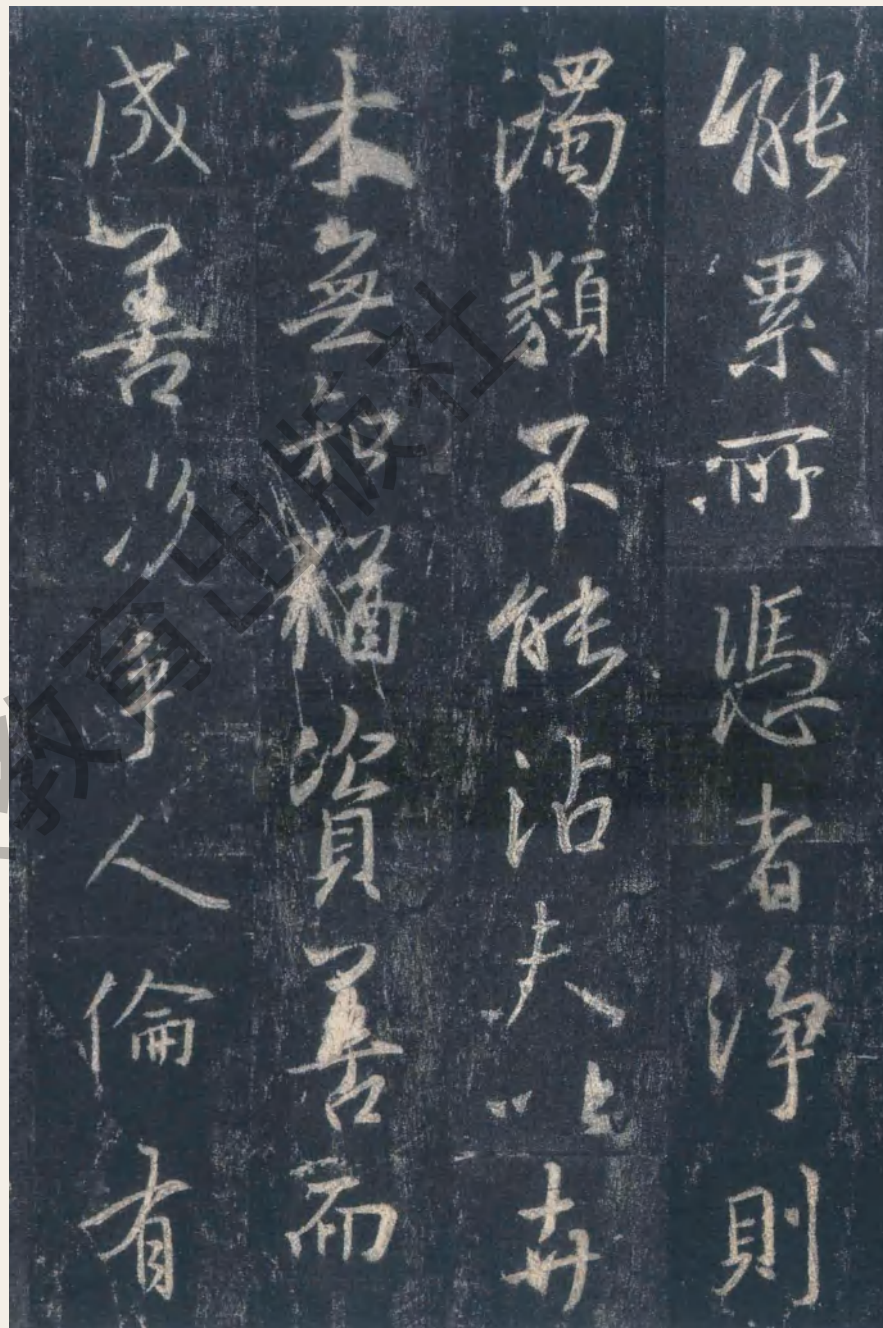 能累所憑者淨則
濁類不能沾夫以卉
木無知猶資善而
成善況乎人倫有
教育出版社